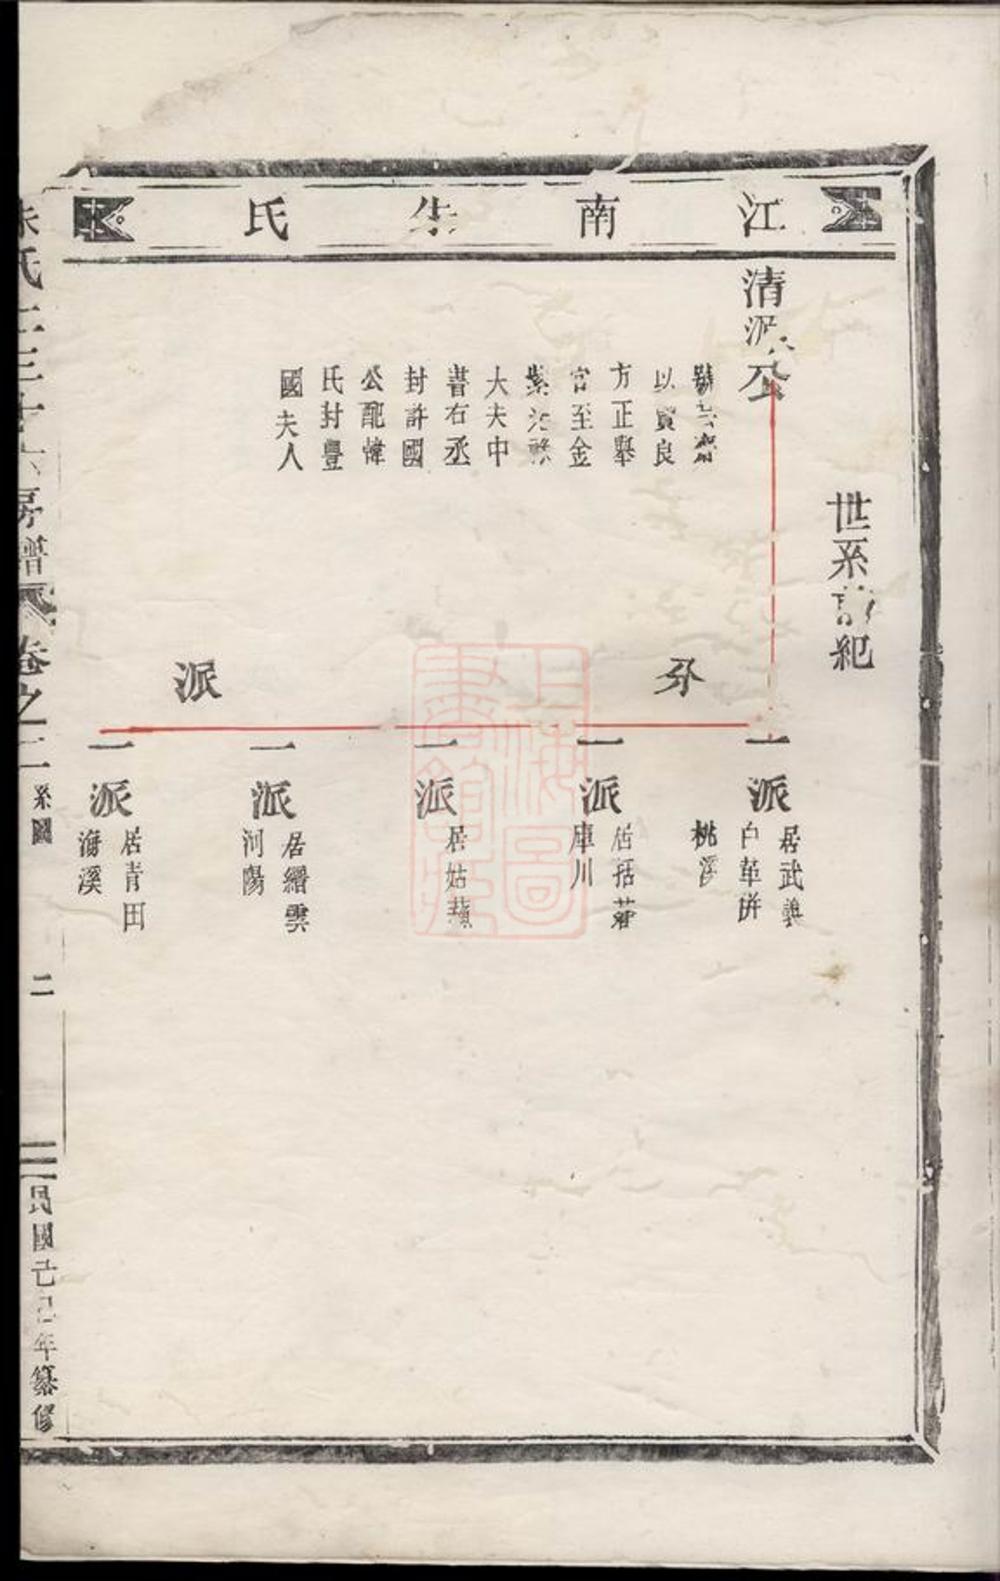 江南朱氏
世系 紀
清 公
以賢良
方正舉
官至金
紫
大夫中
書右丞
封許國
公配偉
氏封豐
國夫人
分派
一派
居武義
白革
桃溪
一派
居括蒼
庫川
一派
居姑蘇
一派
居縉雲
河陽
一派
居青田
海溪
朱氏 六房譜
卷之二
系圖
二
民國 年纂修
上海圖書館藏